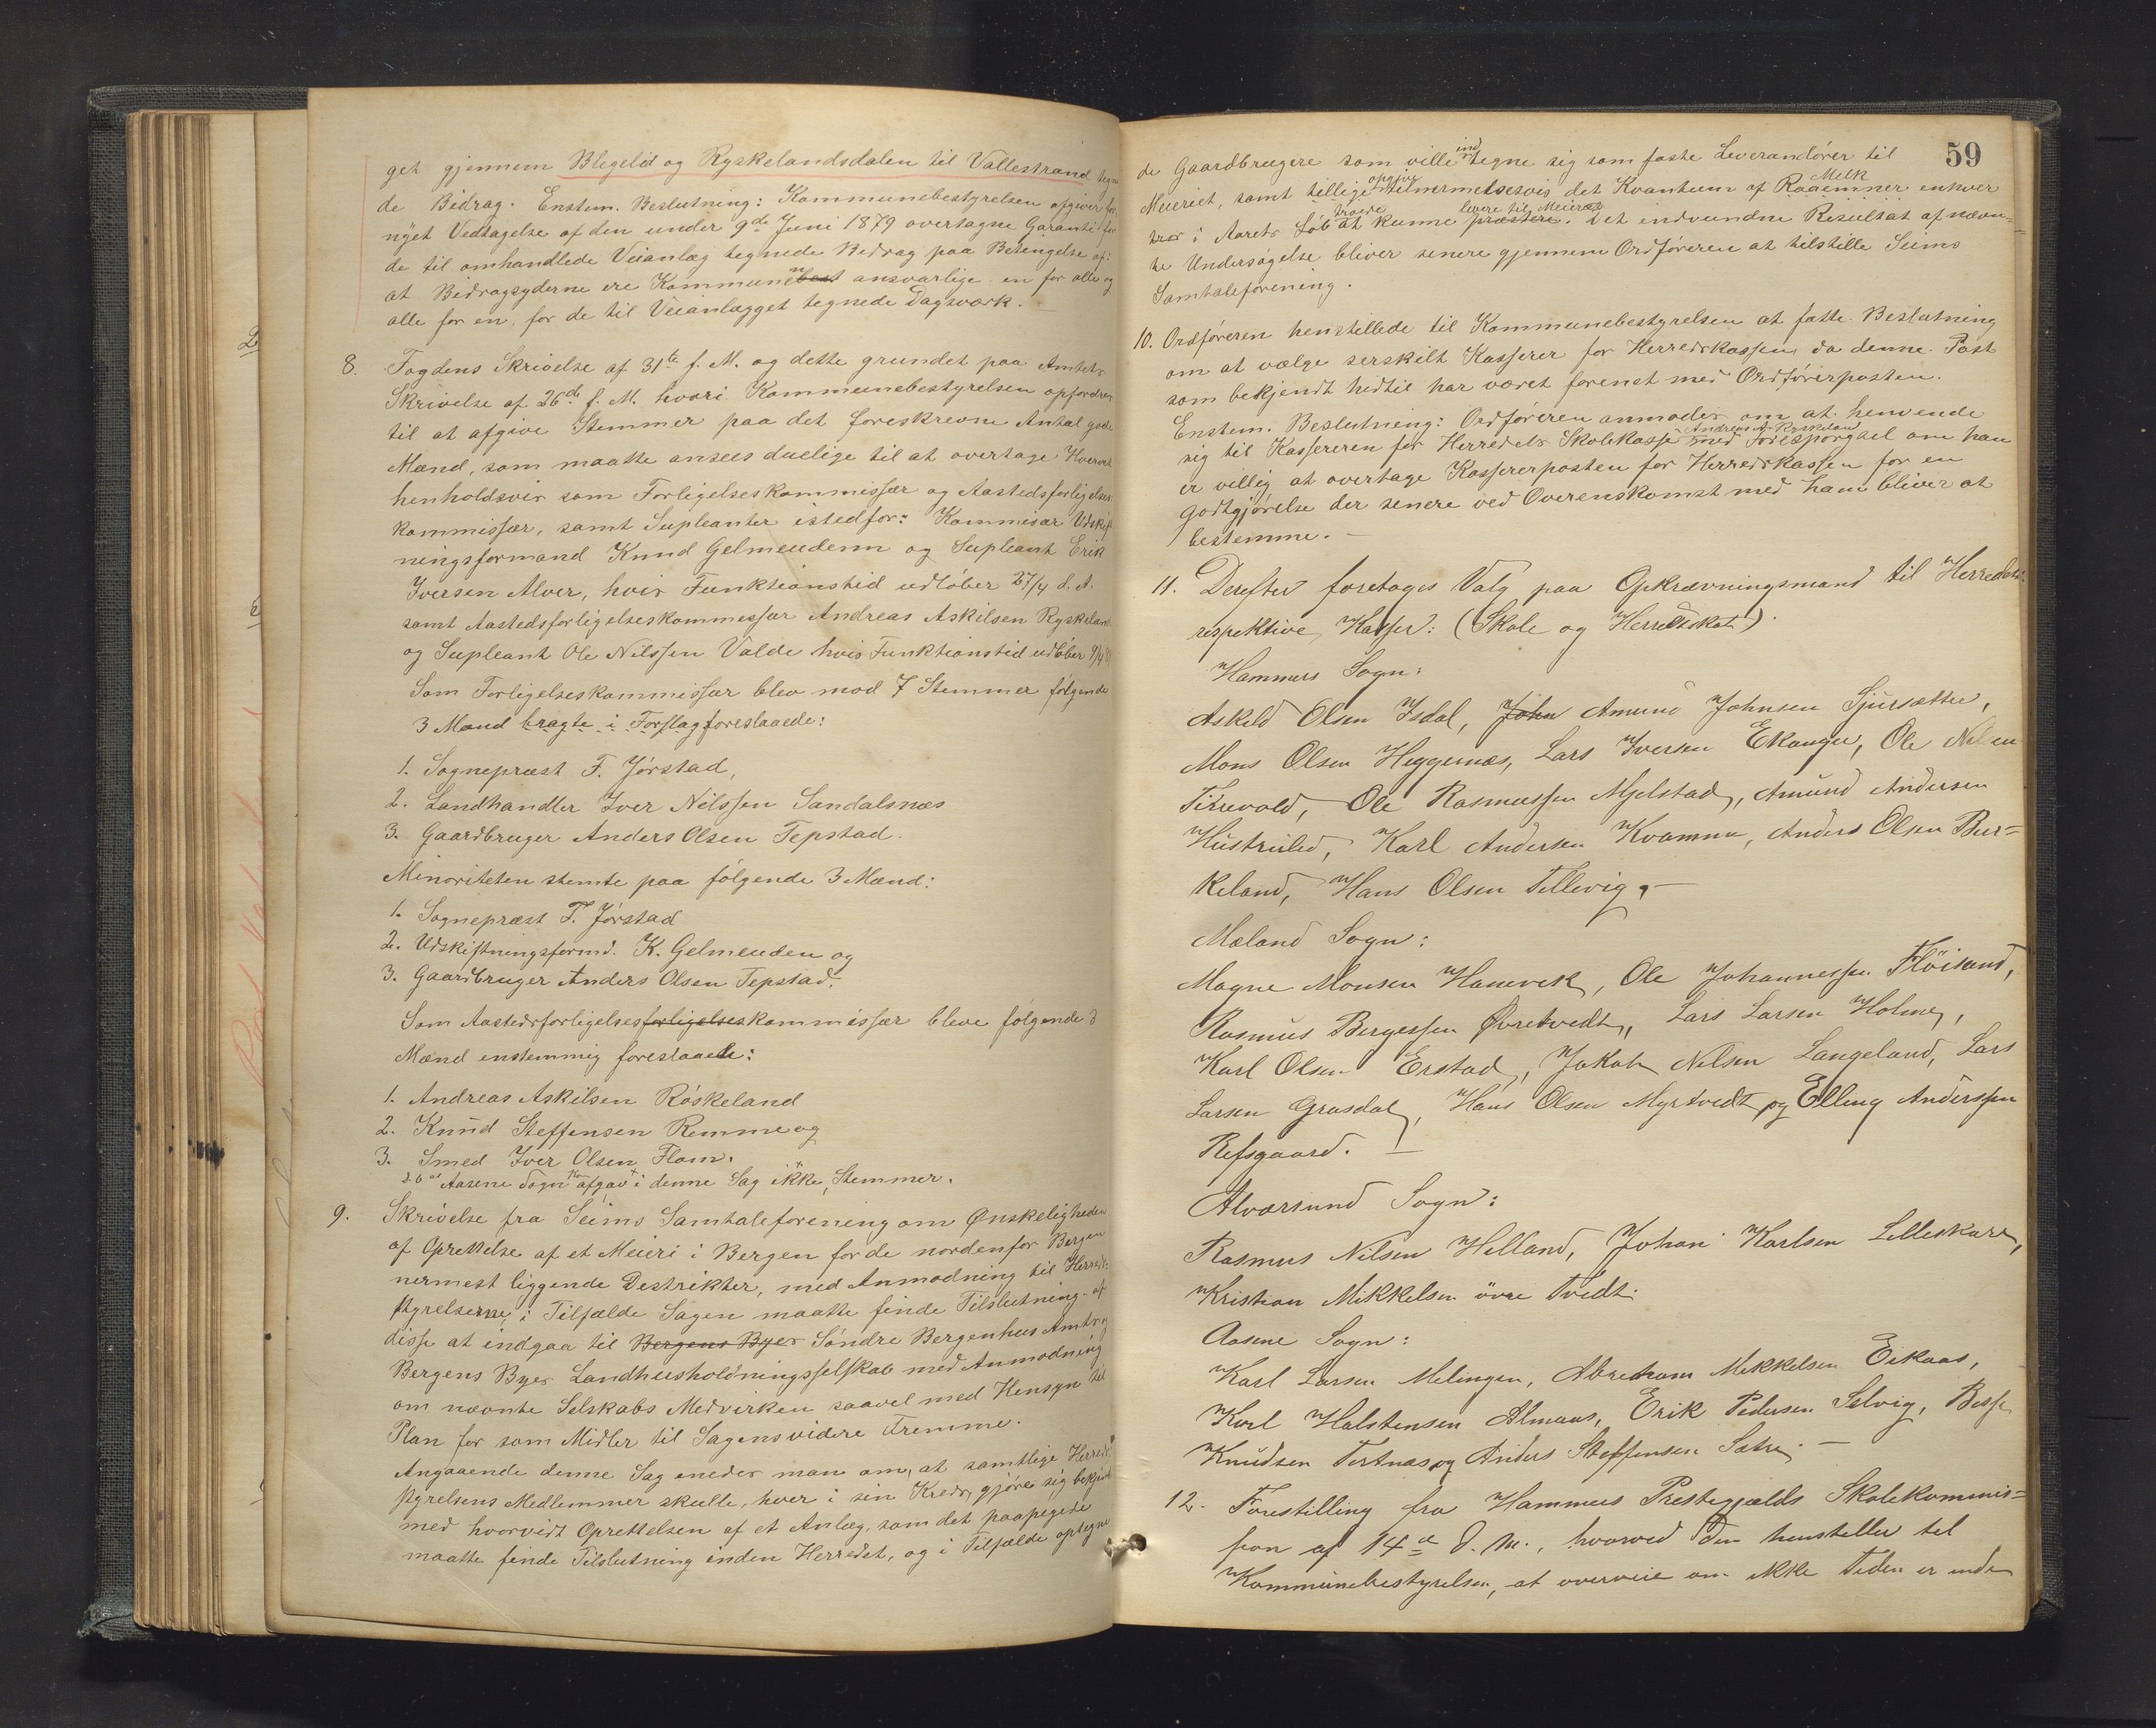 get gjennem Blegelid og Ryskelandsdalen til Vallestrand tegne
de Bidrag. Enstem. Beslutning: Kommunebestyrelsen afgiver for
nyet Vedtagelse af den under 9de Juni 1879 overtagne Garanti for
de til omhandlede Veianlæg tegnede Bidrag paa Betingelse af:
at Bidragsyderne ere Kommunen ansvarlige en for alle og
alle for en, for de til Veianlægget tegnede Dagsværk.
8. Fogdens Skrivelse af 31te f. M. og dette grundet paa Amtets
Skrivelse af 26de f. M. hvori Kommunebestyrelsen opfordres
til at afgive Stemmer paa det foreskrevne Antal gode
Mænd, som maatte ansees duelige til at overtage Hvervet
henholdsvis som Forligelseskommissær og Aastedsforligelses
kommissær, samt Supleanter istedfor: Kommisær Udskift
ningsformand Knud Gelmendenn og Supleant Erik
Iversen Alver, hvis Funktionstid udløber 27/4 d. A.
samt Aastedsforligelseskommessær Andreas Askilsen Ryskeland
og Supleant Ole Nilssen Valde hvis Funktionstid udløber 9/4
Som Forligelseskommissær blev mod 7 Stemmer følgende
3 Mænd bragte i Forslag foreslaaede:
1. Sognepræst F. Jørstad,
2. Landhandler Iver Nilssen Sandalsnæs
3. Gaardbruger Anders Olsen Tepstad.
Minoriteten stemte paa følgende 3 Mænd:
1. Sognepræst F. Jørstad
2. Udskiftningsformd. K. Gelmenden og
3. Gaardbruger Anders Olsen Tepstad.
Som Aastedsforligelsesforligelseskommissær bleve følgende 3
Mænd enstemmig foreslaaede:
1. Andreas Askilsen Røskeland
2. Knud Steffensen Remme og
3. Smed Iver Olsen Flam.
Aasene Sogn afgav i denne Sag ikke Stemmer.
9. Skrivelse fra Seims Samtaleforening om Ønskeligheden
af Oprettelse af et Meieri i Bergen for de nordenfor Bergen
nermest liggende Destrikter, med Anmodning til Herreds
styrelserne, i Tilfælde Sagen maatte finde Tilslutning af
disse at indgaa til Bergens Byes Søndre Bergenhus Amts og
Bergens Byes Landhusholdningsselskab med Anmodning
om nævnte Selskabs Medvirken saavel med Hensyn til
Plan for som Midler til Sagens videre Fremme.
Angaaende denne Sag enedes man om, at samtlige Herreds
styrelsens Medlemmer skulle, hver i sin Kreds, gjøre sig bekjendt
med hvorvidt Oprettelsen af et Anlæg, som det paapegede
maatte finde Tilslutning inden Herredet, og i Tilfælde optegne
59
de Gaardbrugere som ville indtegne sig som faste Leverandører til
Meieriet, samt tillige opgive tilnærmelsesvis det Kvantum af Raaemner Melk enhver
tror i Aarets Løb troede at kunne præstere levere til Meieriet. Det indvundne Resultat af nævn=
te Undersøgelse bliver senere gjennem Ordføreren at tilstille Seims
Samtaleforening.
10. Ordføreren henstillede til Kommunebestyrelsen at fatte Beslutning
om at vælge serskilt Kasserer for Herredskassen, da denne Post
som bekjendt hidtil har været forenet med Ordførerposten.
Enstem. Beslutning: Ordføreren anmodes om at henvende
sig til Kassereren for Herredets Skolekasse Andreas A. Ryskeland med Forespørgsel om han
er villig at overtage Kassererposten for Herredskassen for en
Godtgjørelse der senere ved Overenskomst med ham bliver at
bestemme.
11. Derefter foretages Valg paa Opkrævningsmænd til Herredets
respektive Kasser: (Skole og Herredskat).
Hammers Sogn:
Askild Olsen Isdal, John Amund Johnsen Sjursætter,
Mons Olsen Heggernæs, Lars Iversen Ekanger, Ole Nilsen
Titrevold, Ole Rasmussen Mjelstad, Amund Andersen
Hustruled, Karl Andersen Kvamme, Anders Olsen Bur=
keland, Hans Olsen Tellevig.
Mæland Sogn:
Magne Monsen Hanevek, Ole Johannessen Fløisand,
Rasmus Bergessen Øvretvedt, Lars Larsen Holme,
Karl Olsen Erstad, Jakob Nilsen Langeland, Lars
Larsen Grasdal, Hans Olsen Myrtvedt og Elling Anderssen
Refsgaard.
Alværsund Sogn:
Rasmus Nilsen Helland, Johan Karlsen Lilleskare,
Kristian Mikkelsen övre Tvedt.
Aasene Sogn:
Karl Larsen Milingen, Abraham Mikkelsen Eikaas,
Karl Halstensen Almaas, Erik Pedersen Selvig, Besse
Knudsen Tertnæs og Anders Steffensen Sætre.
12. Forestilling fra Hammers Prestegjælds Skolekommis=
sion af 14de d. M., hvorved den henstiller til
Kommunebestyrelsen, at overveie om ikke Tiden er inde